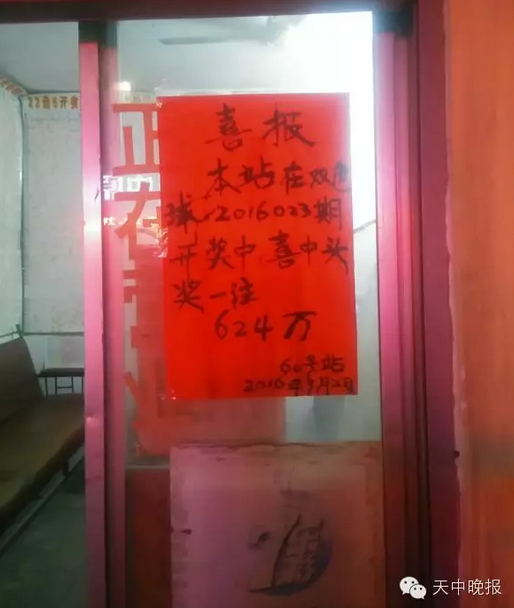 喜报
本站在双色
球2016023期
开奖中,喜中头
奖一注
624万
60号站
2016年3月2日
正在
天中晚报